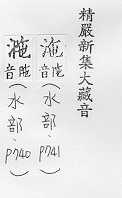 精嚴新集大藏音
音(水部、p741)
音(水部、p740)